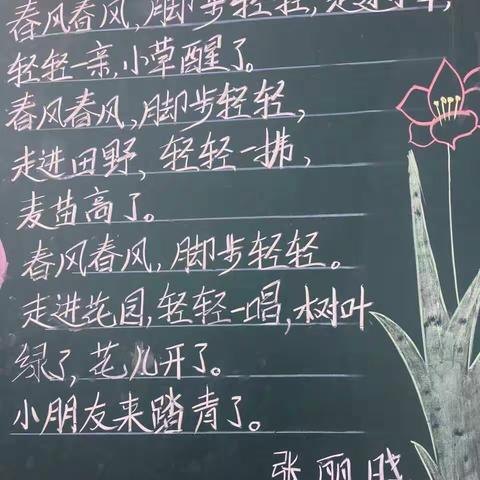 春风春风,脚步轻轻,走
轻轻一亲,小草醒了。
春风春风,脚步轻轻,
走进田野,轻轻一拂,
麦苗高了。
春风春风,脚步轻轻。
走进花园,轻轻一唱,树叶
绿了,花儿开了。
小朋友来踏青了。
张丽晓